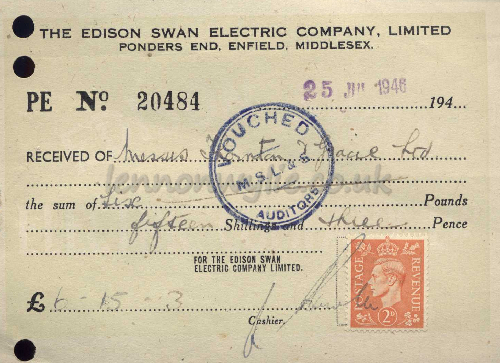 THE EDISON SWAN ELECTRIC COMPANY, LIMITED
PONDERS END, ENFIELD, MIDDLESEX.
25 JUL 1946
PE No. 20484 194
VOUCHED
M.S.L. & S
AUDITORS
RECEIVED OF Messrs
lennonwylie.co.uk
the sum of Six Pounds
fifteen Shillings and three Pence
FOR THE EDISON SWAN
ELECTRIC COMPANY LIMITED.
£6 - 15 - 3
Cashier.
POSTAGE REVENUE
2D